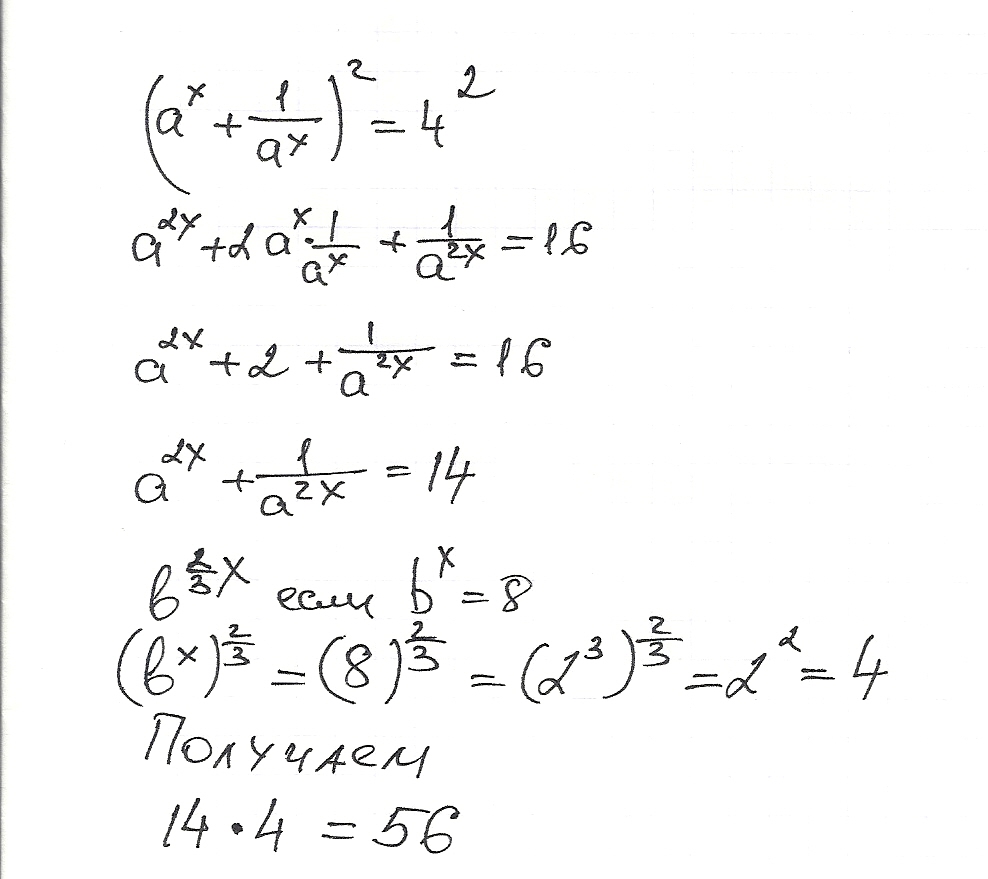 (a^x + 1/a^x)^2 = 4^2
a^2x + 2a^x · 1/a^x + 1/a^2x = 16
a^2x + 2 + 1/a^2x = 16
a^2x + 1/a^2x = 14
в^(2/3)x если b^x = 8
(в^x)^(2/3) = (8)^(2/3) = (2^3)^(2/3) = 2^2 = 4
Получаем
14 · 4 = 56